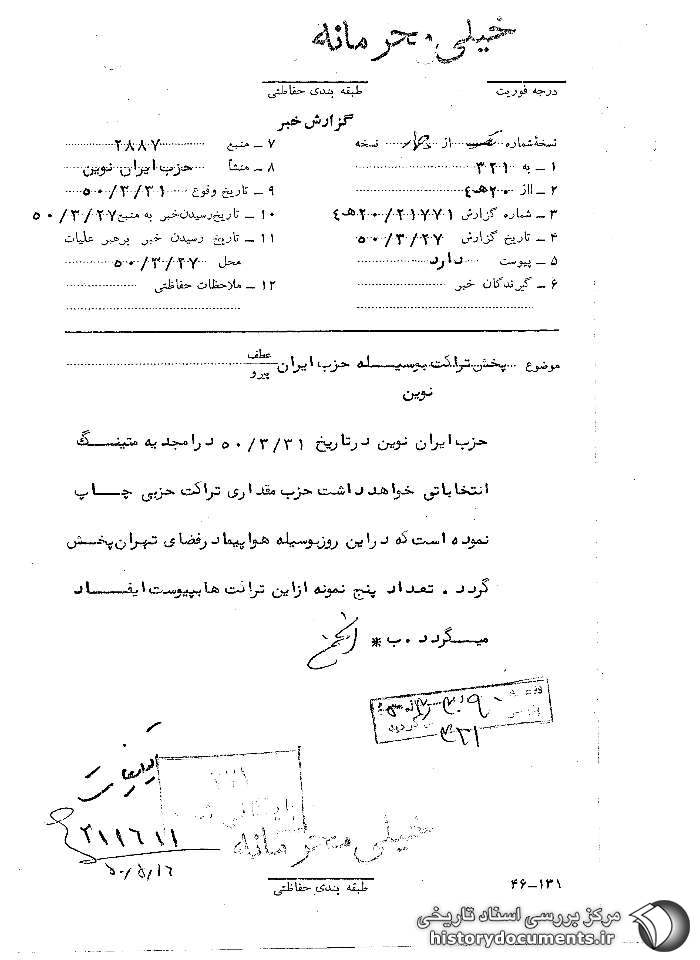 خیلی محرمانه
درجه فوریت
طبقه بندی حفاظتی
گزارش خبر
نسخهٔ شماره یک از چهار نسخه
۱ ـ به ۳۲۱
۲ ـ از ۲۰ هـ ۴
۳ ـ شماره گزارش ۲۱۷۷۱/۲۰ هـ ۴
۴ ـ تاریخ گزارش ۵۰/۳/۲۷
۵ ـ پیوست دارد
۶ ـ گیرندگان خبر
۷ ـ منبع ۲۸۸۷
۸ ـ منشأ حزب ایران نوین
۹ ـ تاریخ وقوع ۵۰/۳/۳۱
۱۰ ـ تاریخ رسیدن خبر به منبع ۵۰/۳/۲۷
۱۱ ـ تاریخ رسیدن خبر برهبر عملیات
محل ۵۰/۳/۲۷
۱۲ ـ ملاحظات حفاظتی
موضوع پخش تراکت بوسیله حزب ایران نوین
عطف
پیرو
حزب ایران نوین در تاریخ ۵۰/۳/۳۱ در امجدیه متینگ
انتخاباتی خواهد داشت حزب مقداری تراکت حزبی چاپ
نموده است که در این روز بوسیله هواپیما در فضای تهران پخش
گردد . تعداد پنج نمونه از این تراکت ها بپیوست ایفاد
میگردد . ب *
۳۲۱
۲۱۱۶۱۱
۵۰/۵/۱۶
خیلی محرمانه
طبقه بندی حفاظتی
۴۶-۱۳۱
مرکز بررسی اسناد تاریخی
historydocuments.ir